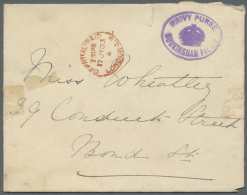 PRIVY PURSE
BUCKINGHAM PALACE
OFFICIAL PAID
Miss Wheatley
39 Conduit Street
Bond St.